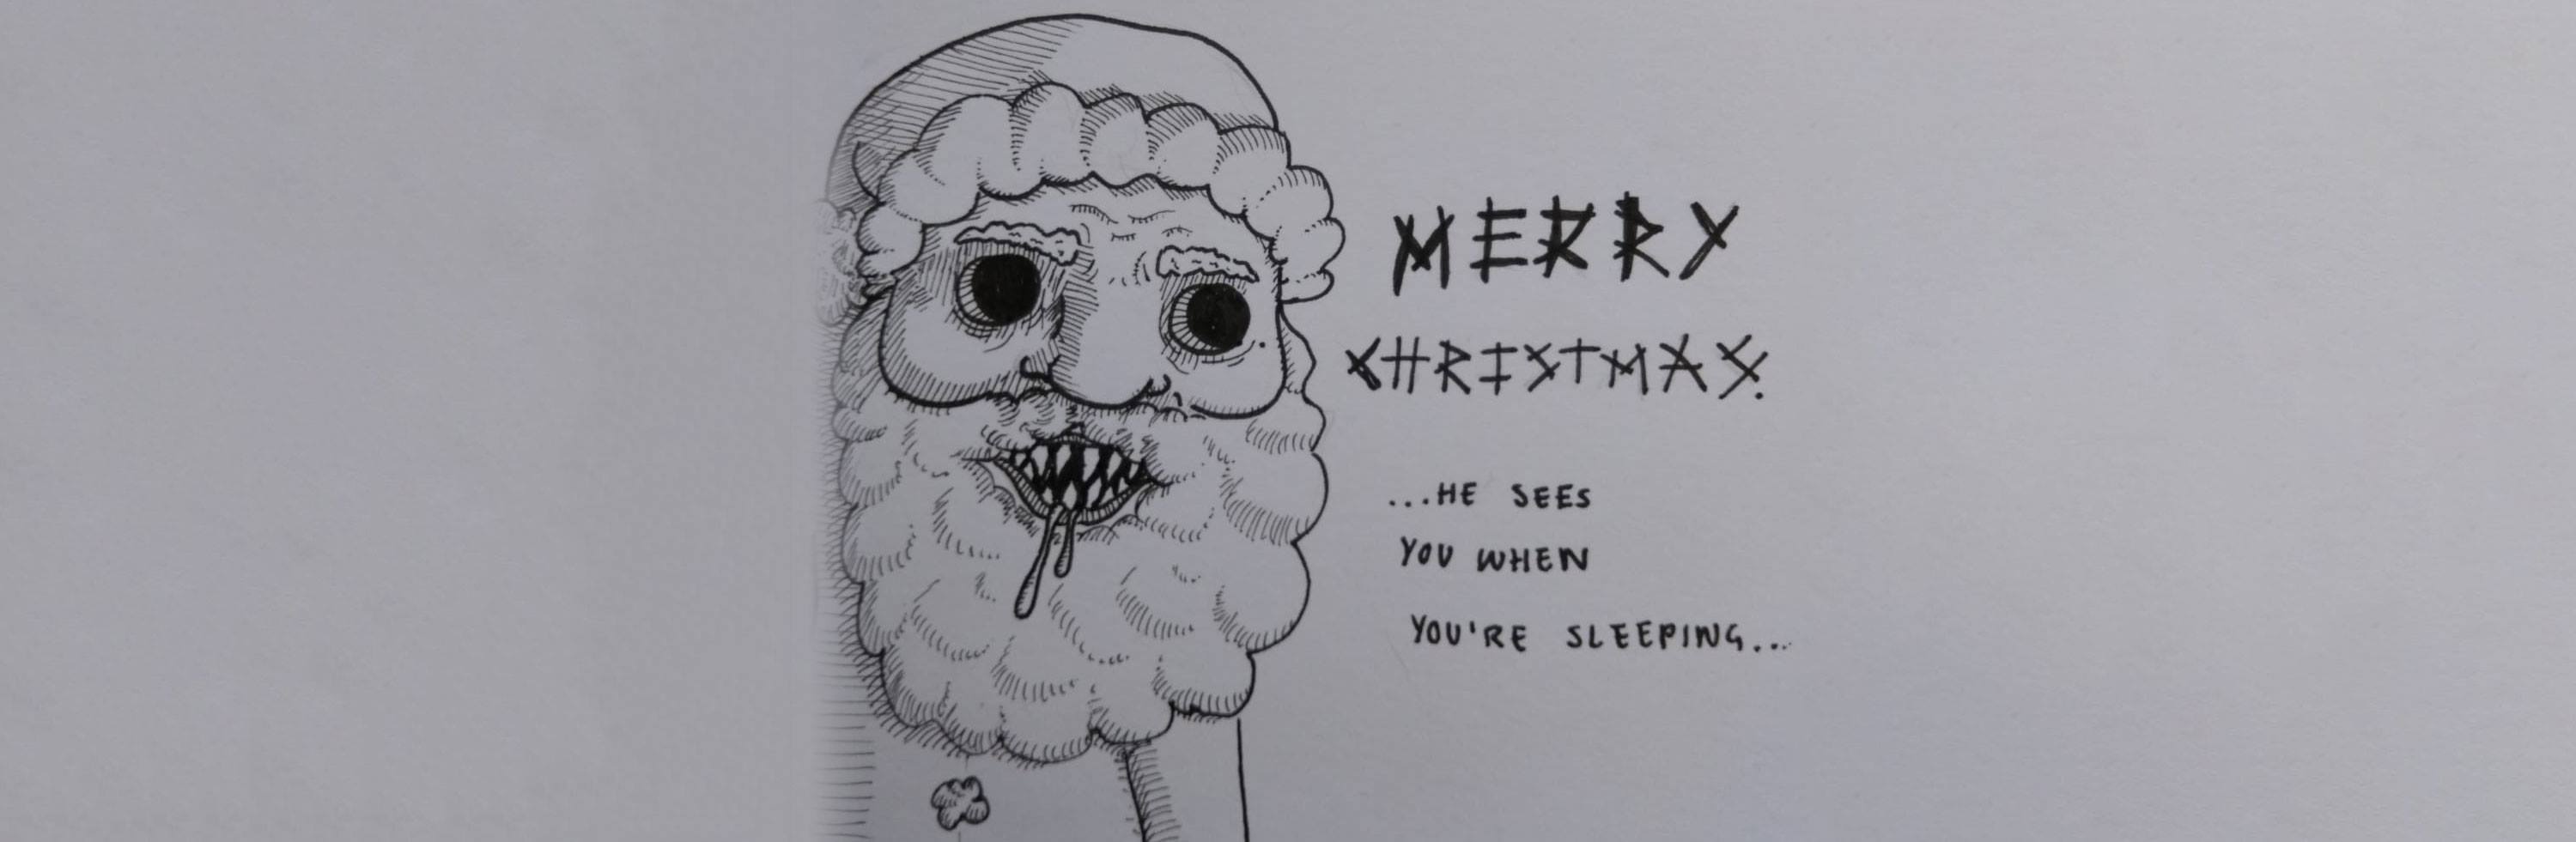 MERRY
CHRISTMAS.
...HE SEES
YOU WHEN
YOU'RE SLEEPING...